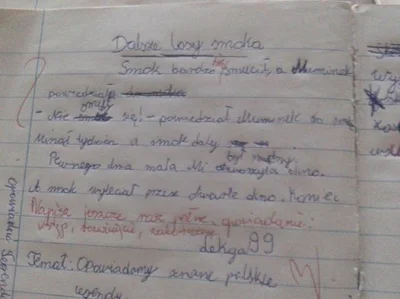 Dalsze losy smoka
Smok bardzo się smucił, a Muminek
powiedział
- Nie smuć się! - powiedział Muminek do
Minął tydzień a smok dalej był smutny.
Pewnego dnia mała Mi otworzyła okno.
A smok wyleciał przez otwarte okno. Koniec
Napisz jeszcze raz pełne opowiadanie:
wstęp, rozwinięcie, zakończenie
Lekcja 99
Temat: Opowiadamy znane polskie
legendy